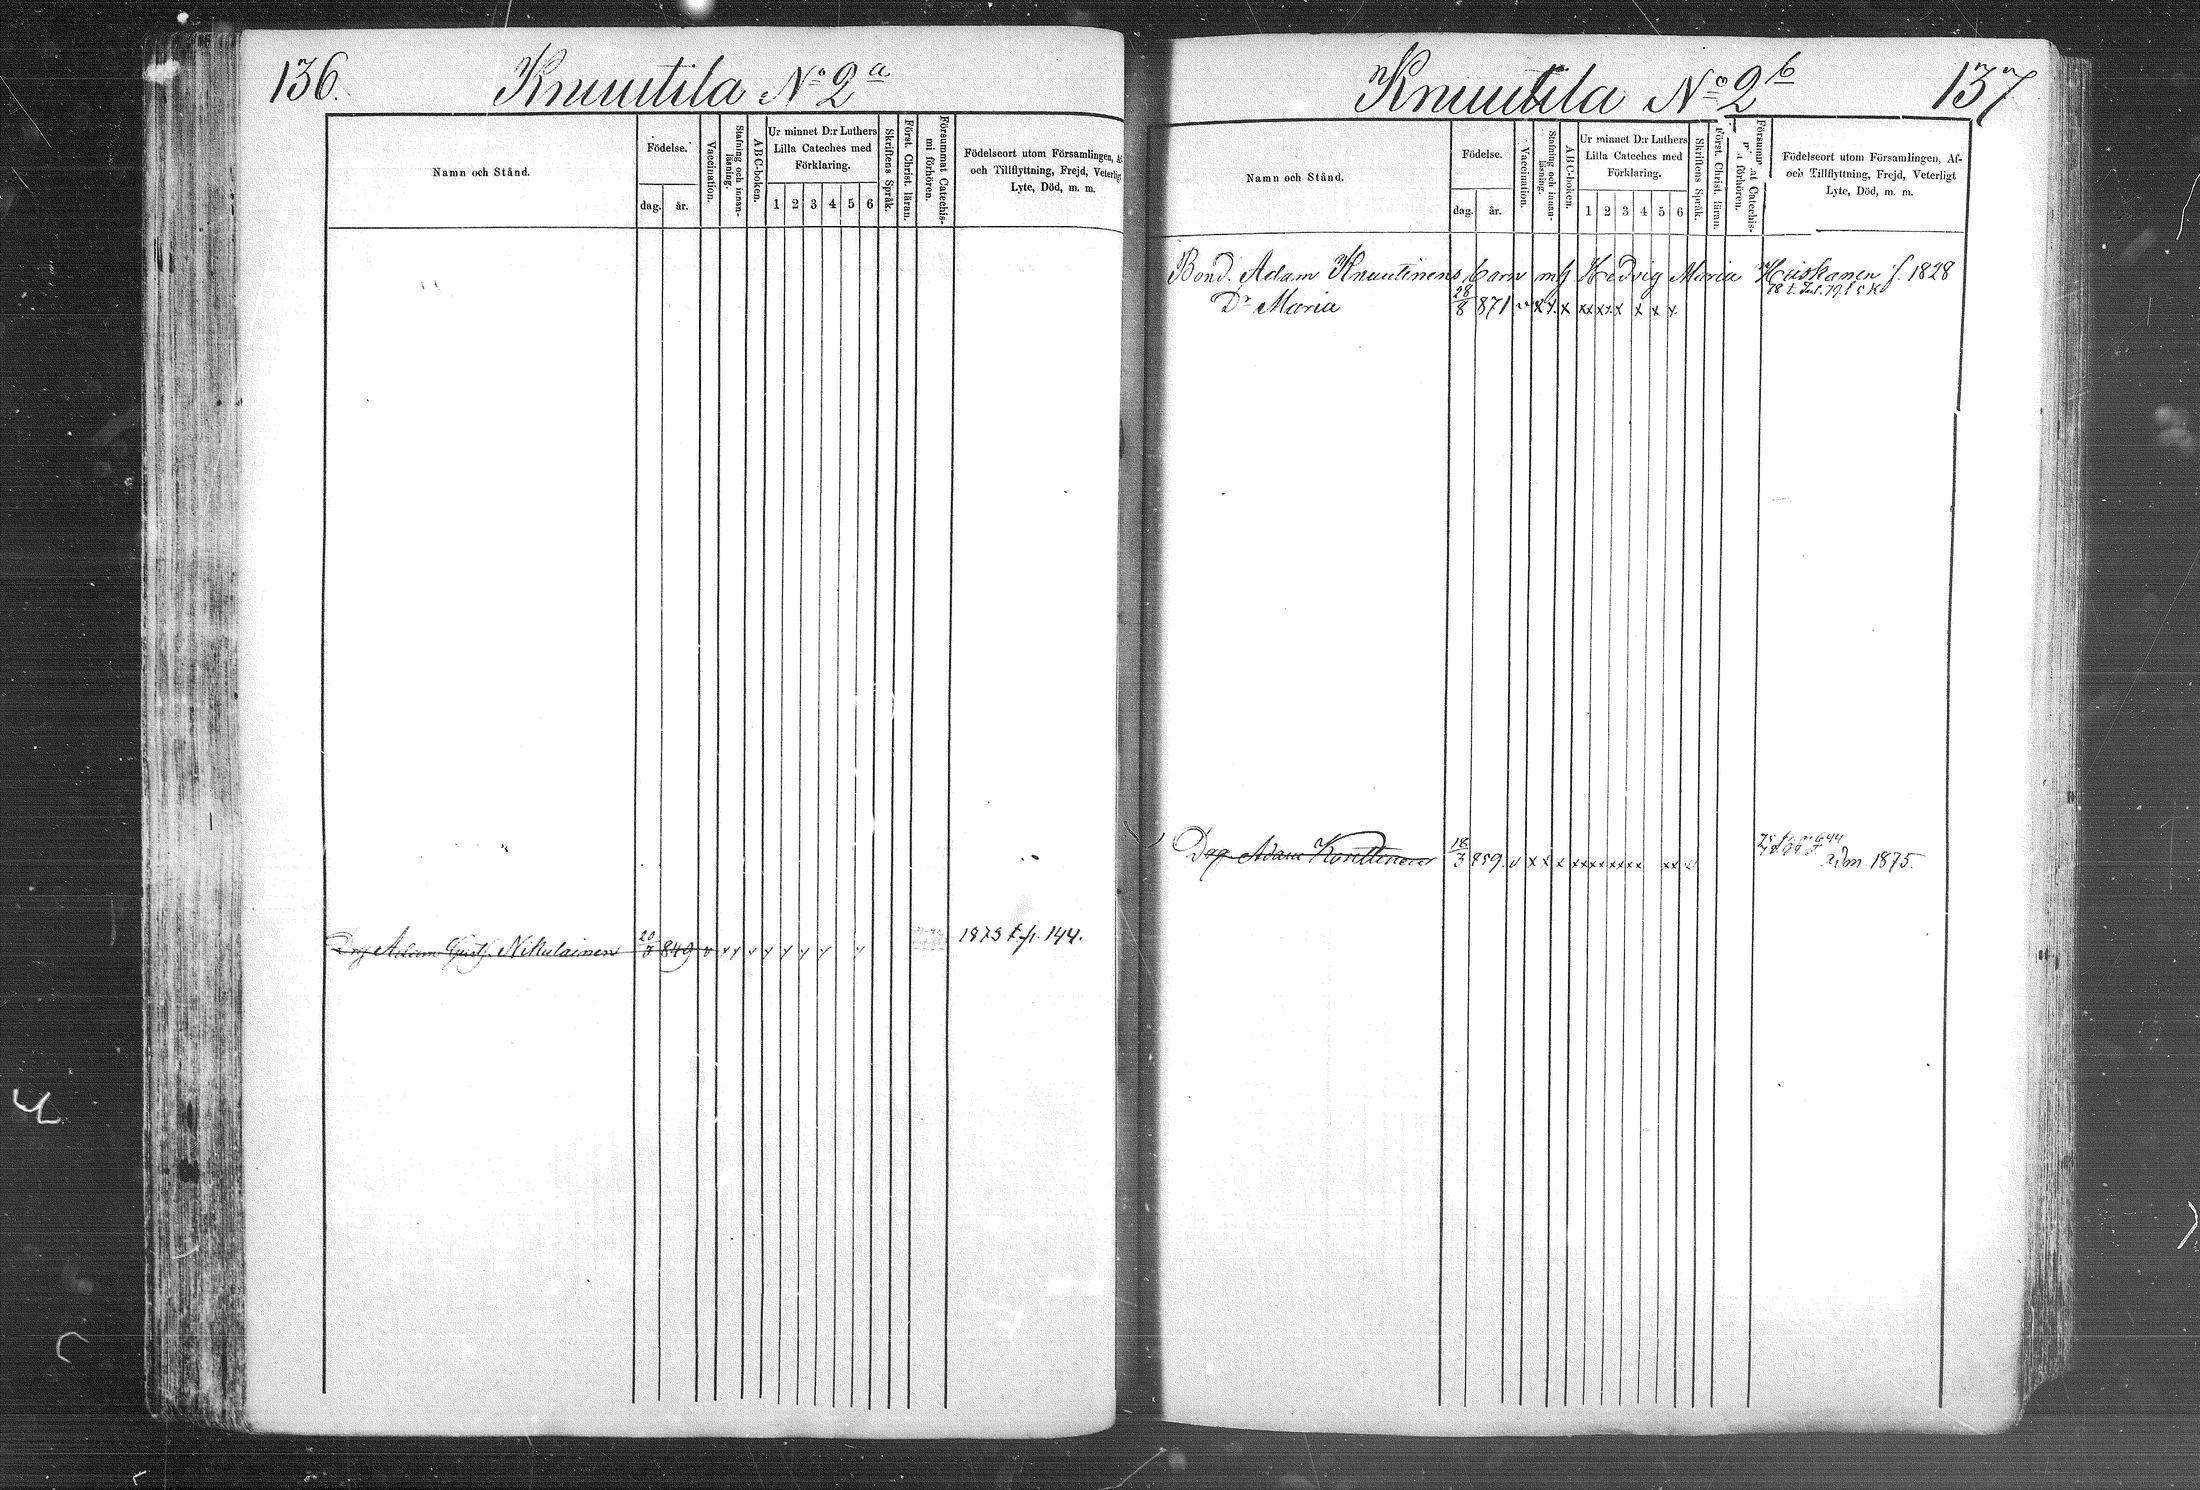 136.
Knuutila No 2a
Namn och Stånd.
Födelse.
dag. år.
Vaccination.
Stafning och innan-
läsning.
ABC-boken.
Ur minnet D:r Luthers
Lilla Cateches med
Förklaring.
1 2 3 4 5 6
Skriftens Språk.
Först. Christ. läran.
Försummat Catechis-
mi förhören.
Födelseort utom Församlingen, Af-
och Tillflyttning, Frejd, Veterligt
Lyte, Död, m. m.
Drg Adam Gust. Nikulainen 20/3 849 v x x v x x x x x 1873 t. p. 144.
Knuutila No 2b
137
Namn och Stånd.
Födelse.
dag. år.
Vaccination.
Stafning och innan-
läsning.
ABC-boken.
Ur minnet D:r Luthers
Lilla Cateches med
Förklaring.
1 2 3 4 5 6
Skriftens Språk.
Först. Christ. läran.
Försummat Catechis-
mi förhören.
Födelseort utom Församlingen, Af-
och Tillflyttning, Frejd, Veterligt
Lyte, Död, m. m.
Bond. Adam Knuutinens barn m/ Hedvig Maria f. 1828
Dr Maria 28/8 871 v x x x xx xx x x x x
Drg Adam Konttinen 18/3 859. v x x x xx xx xx xx xx v
adm 1875.